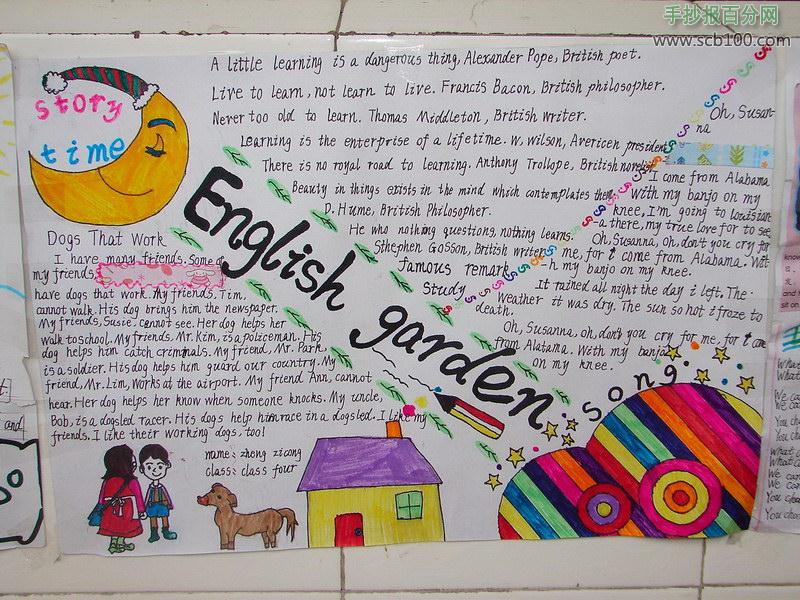 手抄报百分网
www.scb100.com
story
time
A little learning is a dangerous thing, Alexander Pope, British poet.
Live to learn, not learn to live. Francis Bacon, British philosopher.
Never too old to learn. Thomas Middleton, British writer.
Learning is the enterprise of a lifetime. W. Wilson, Avericen president
There is no royal road to learning. Anthony Trollope, British novelist
Beauty in things exists in the mind which contemplates them
D. Hume, British Philosopher.
He who nothing questions, nothing learns.
Sthephen Gosson, British writer
famous remark
Study
English garden
Dogs That Work
I have many friends. Some of
my friends
have dogs that work. My friends, Tim,
cannot walk. His dog brings him the newspaper.
My friends, Susie, cannot see. Her dog helps her
walk to school. My friends, Mr. Kim, is a policeman. His
dog helps him catch criminals. My friend, Mr. Park,
is a soldier. His dog helps him guard our country. My
friend, Mr. Lim, works at the airport. My friend Ann, cannot
hear. Her dog helps her know when someone knocks. My uncle,
Bob, is a dogsled racer. His dogs help him race in a dogsled. I like my
friends. I like their working dogs, too!
name: zheng zicong
class: class four
Oh, Susan-
na
I come from Alabama
with my banjo on my
knee, I'm going to Louisian-
a there, my true love for to see,
Oh, Susanna, oh, don't you cry for
me, for I come from Alabama. Wit-
h my banjo on my knee.
It rained all night the day i left. The
Weather it was dry. The sun so hot i froze to
death.
Oh, Susanna, oh, don't you cry for me, for I come
from Alatama. With my banjo
on my knee.
song
and